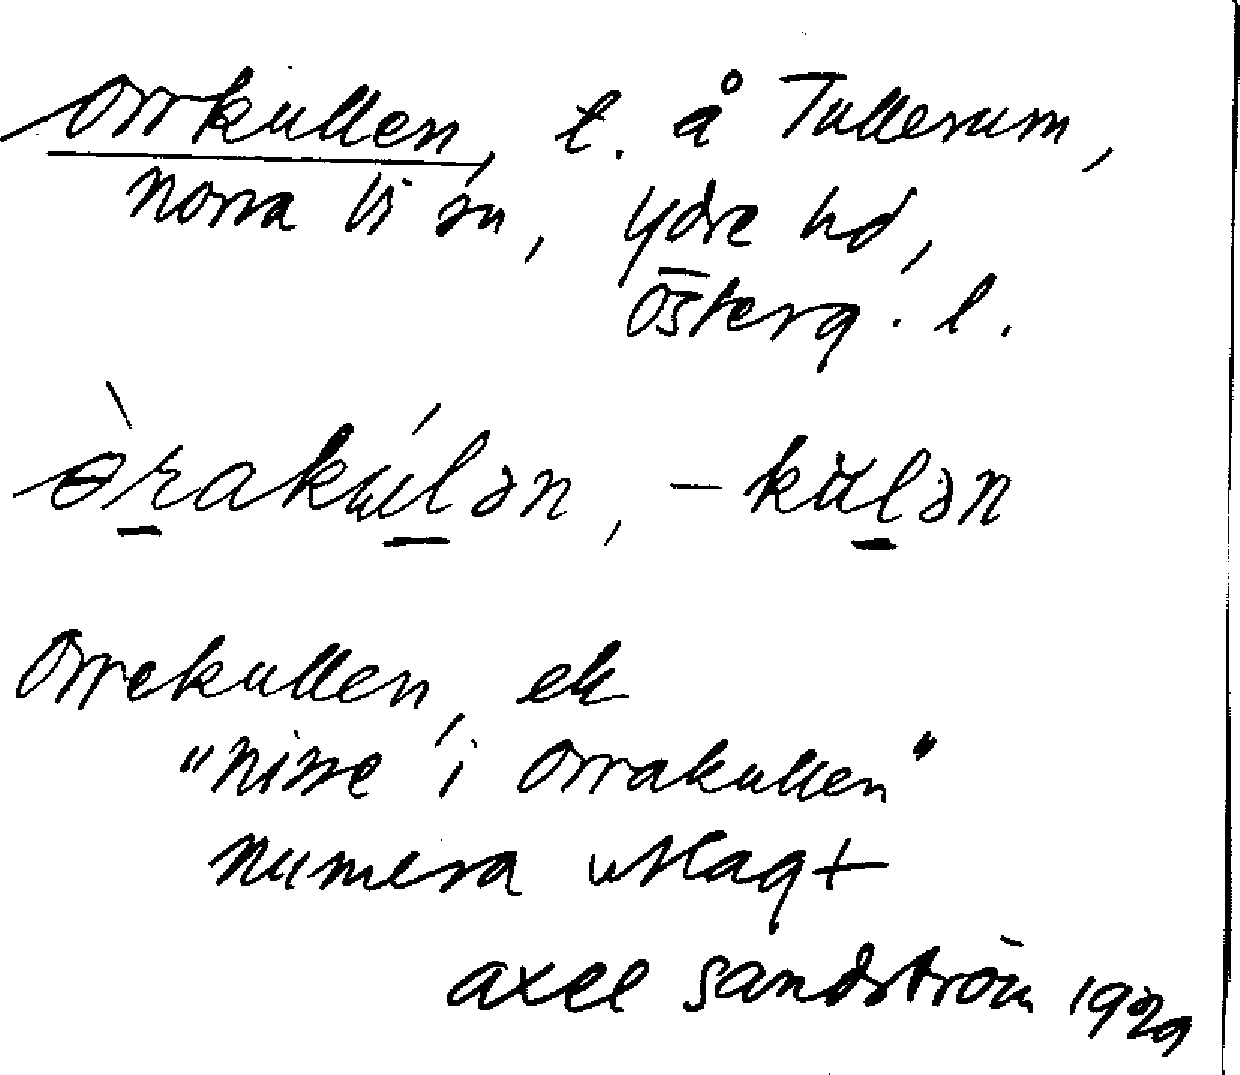 Orrkullen, t. å Tullerum,
Norra Vi sn, Ydre hd,
Österg. l.
òrakúlən, -kulən
Orrekullen, ek
"Nisse i Orrakullen"
numera utlagt
Axel Sandström 1929